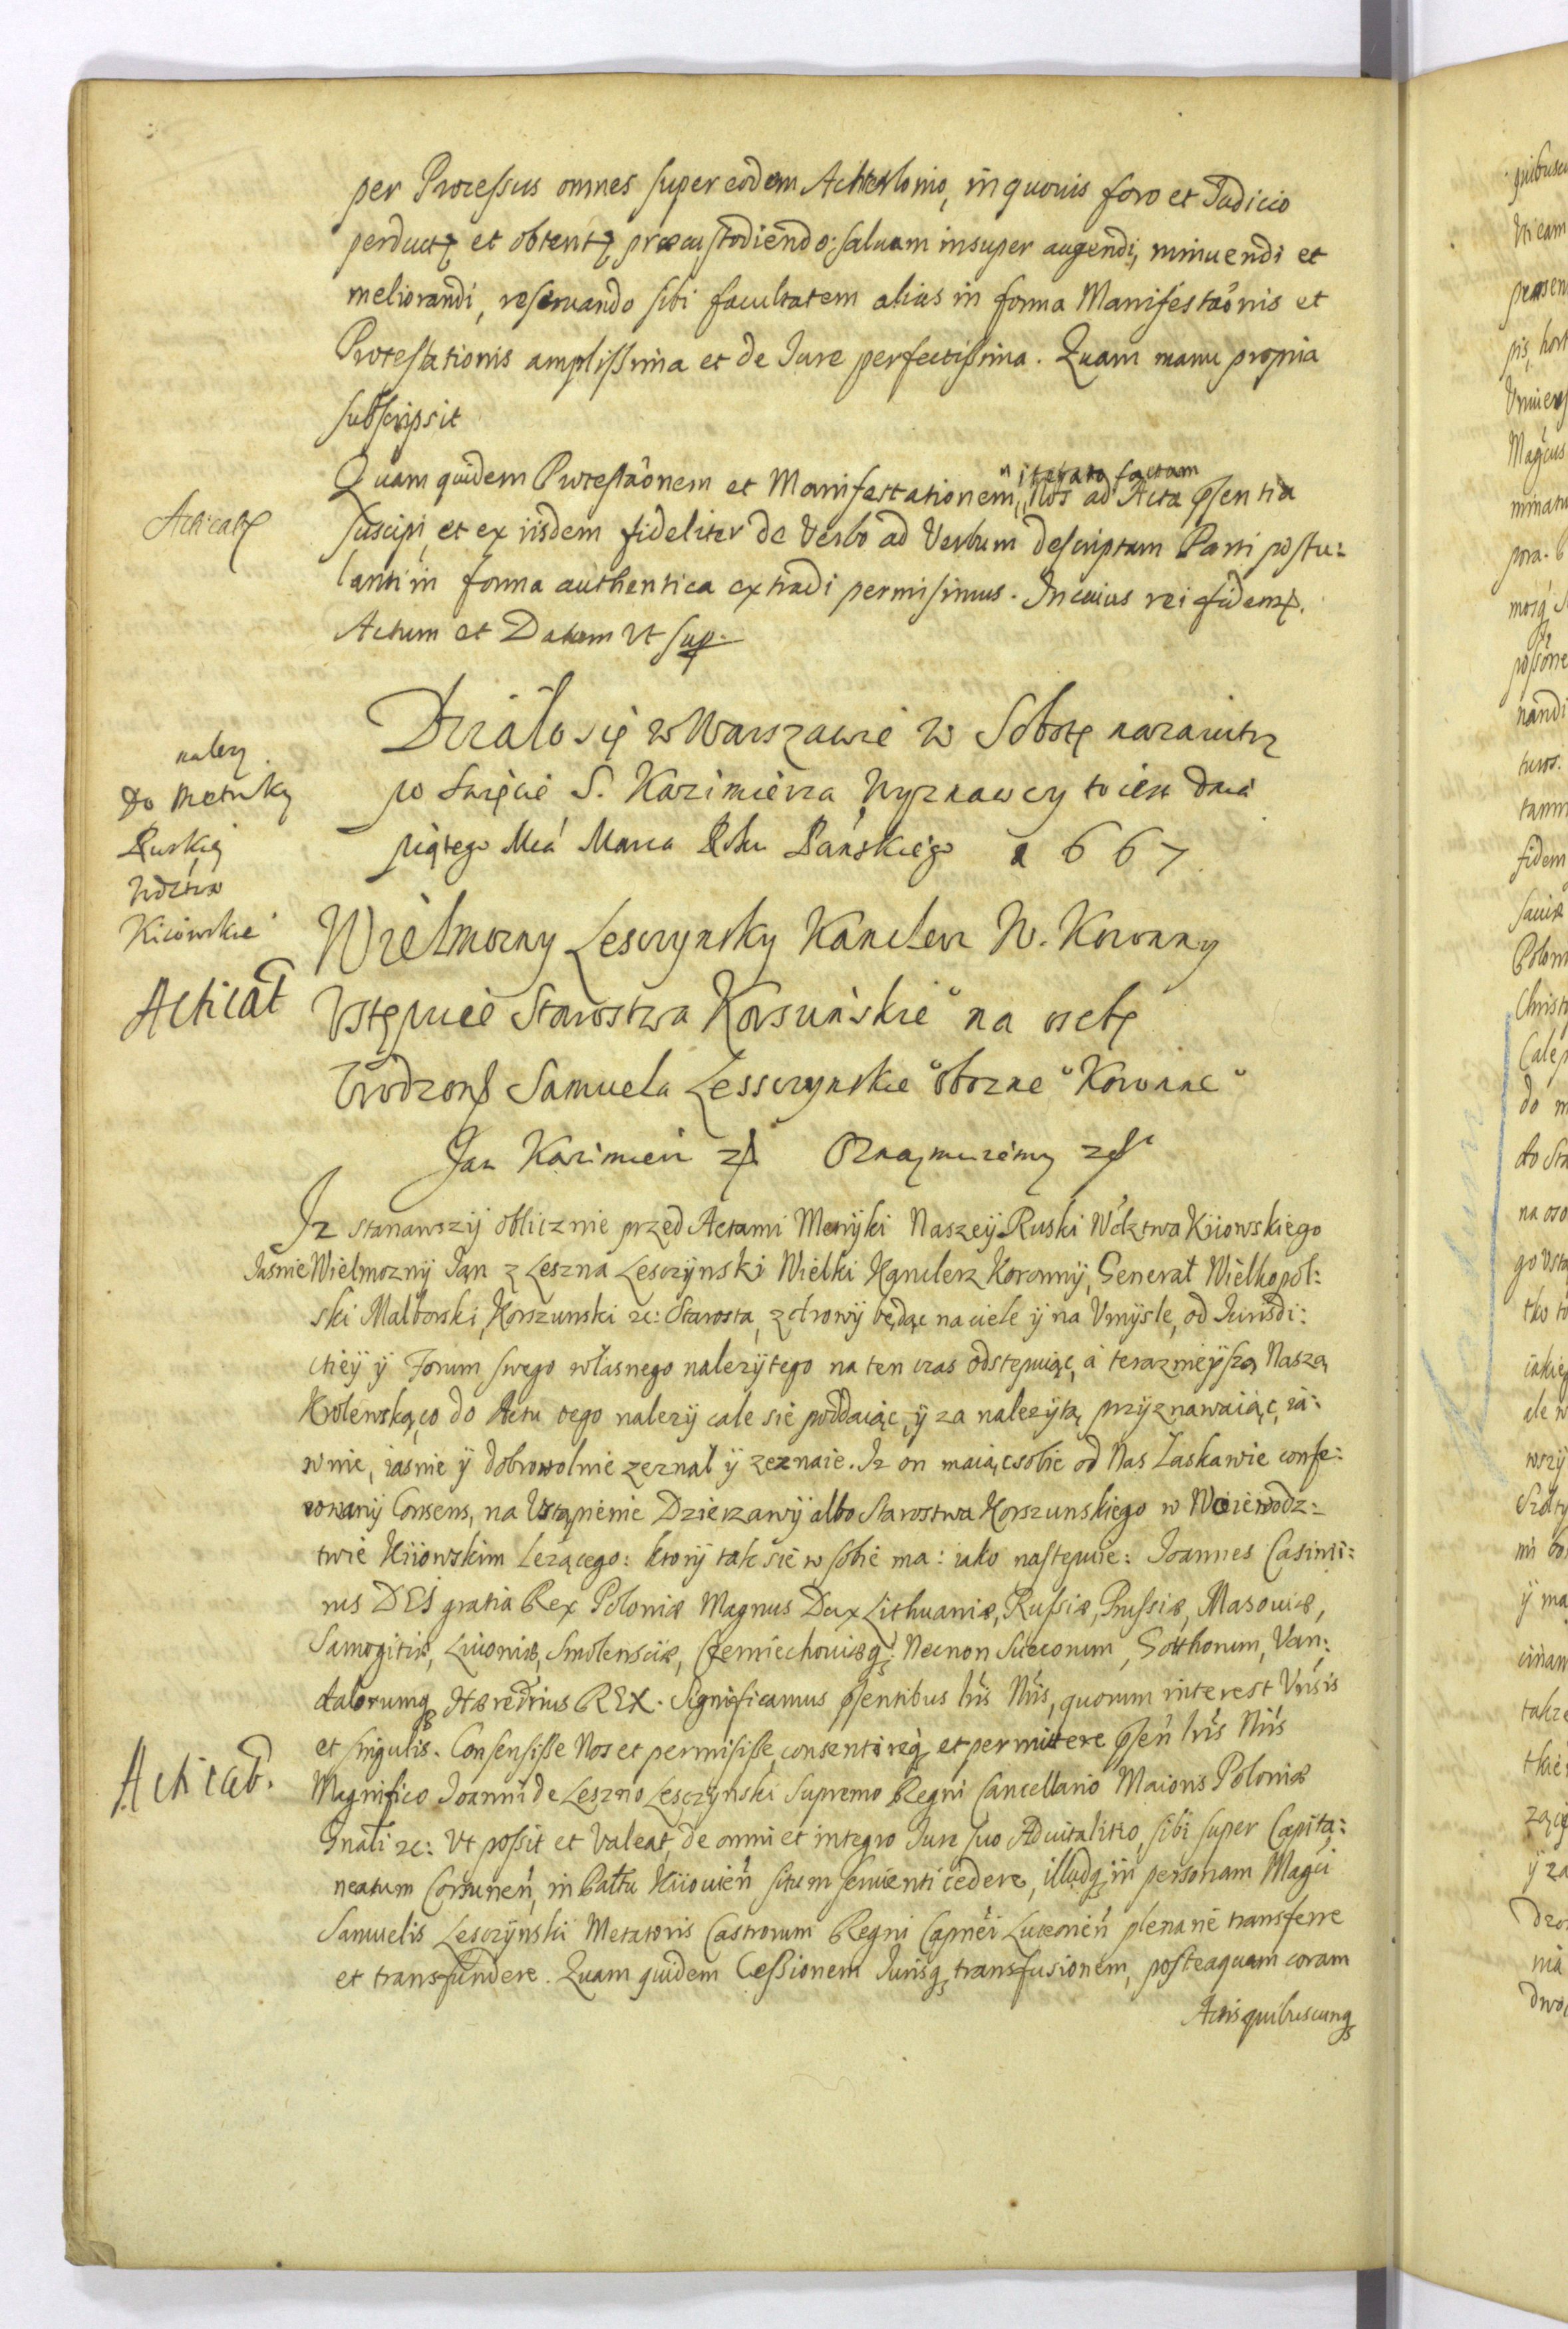 per Processus omnes super eodem Achtelonio, in quovis foro et Judicio
perduct et obtent præcustodiendo: salvam insuper augendi, minuendi et
meliorandi, reservando sibi facultatem alias in forma Manifestaōnis et
Protestationis amplissima et de Jure perfectissima. Quam manu propria
subscripsit
Quam quidem Protestaōnem et Manifestationem, Nos ad Acta pſentia
iterato factam
Acticat
suscipi, et ex iisdem fideliter de Verbo ad Verbum descriptam Parti postu:
lanti in forma authentica extradi permisimus. In cuius rei fidem.
Actum et Datum Vt sup.
Działo się w Warszawie w Sobotę nazaiutrz
po Swięcie S. Kazimierza Wyznawcy to iest dnia
piątego Mca Marca Roku Pańskiego 1667
należy
do Metryki
Ruskiej
Wdztwa
Kiiowskie°
Wielmożny Lesczynsky Kanclerz W. Koronny
Acticat
Vstępuie Starostwa Korsuńskie° na osobę
Vrodzon Samuela Lessczynskie° obozne° Koronne°
Jan Kazimierz Oznaymuiemy
Iz stanąwszij oblicznie przed Actami Metryki Naszeij Ruski Wdztwa Kiiowskiego
Jasnie Wielmoznij Jan z Leszna Lesczijnski Wielki Kanclerz Koronnij, Generał Wielkopol:
ski Malborski, Korszunski rc: Starosta, zdrowij będąc na ciele ij na Vmysle, od Jurisdi:
ctieij ij Forum swego własnego nalezijtego na ten czas odstępuiąc, a teraznieijszą Naszą
Krolewską, co do Actu tego nalezij cale się poddaiąc, ij za nalezijtą przijznawaiąc, ia:
wnie, iasnie ij dobrowolnie zeznał ij zeznaie. Iz on maiąc sobie od Nas Łaskawie confe:
rowanij Consens, na Vstąpienie Dzierzawij albo Starostwa Korszunskiego w Woiewodz:
twie Kiiowskim Lezącego: ktorij tak się w sobie ma: iako następuie: Joannes Casimi:
rus DEI gratia Rex Poloniæ Magnus Dux Lithuaniæ, Russiæ, Prussiæ, Masoviæ,
Samogitiæ, Livoniæ, Smolensciæ, Czerniechoviæq: Necnon Suecorum, Gotthorum, Van:
dalorumq Hæredrius REX. Significamus pſentibus lris Nris, quorum interest Vnsis
et singulis. Consensisse Nos et permisisse, consentireq et permittere pſen lris Nris
Acticat.
Magnifico Joanni de Leszno Lesczijnski Supremo Regni Cancellario Maioris Poloniæ
Gnali rc: Vt possit et Valeat, de omni et integro Jure suo Advitalitio, sibi super Capita:
neatum Corsunen, in Pattu Kiiovien situm servienti cedere, illudq in personam Magci
Samuelis Lesczijnski Metatoris Castrorum Regni Capnei Luceorien plenarie transferre
et transfundere. Quam quidem Cessionem Jurisq transfusionem, posteaquam coram
Actis quibuscunq